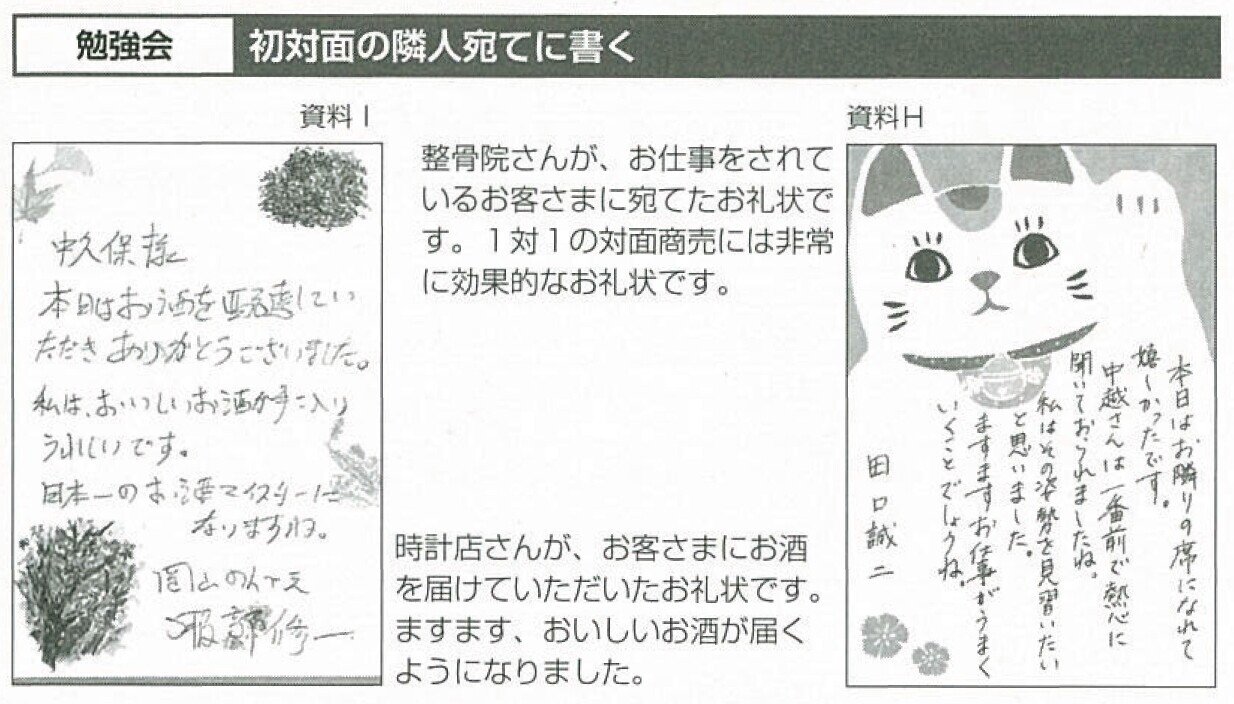 勉強会
初対面の隣人宛てに書く
資料H
本日はお隣りの席になれて
嬉しかったです。
中越さんは一番前で熱心に
聞いておられましたね。
私はその姿勢を見習いたい
と思いました。
ますますお仕事がうまく
いくことでしょうね。
田口誠二
整骨院さんが、お仕事をされて
いるお客さまに宛てたお礼状で
す。1対1の対面商売には非常
に効果的なお礼状です。
資料I
中久保様
本日はお酒を配達してい
ただきありがとうございました。
私は、おいしいお酒が手に入り
うれしいです。
日本一のお酒マイスターに
なりますね。
岡山の
服部修一
時計店さんが、お客さまにお酒
を届けていただいたお礼状です。
ますます、おいしいお酒が届く
ようになりました。